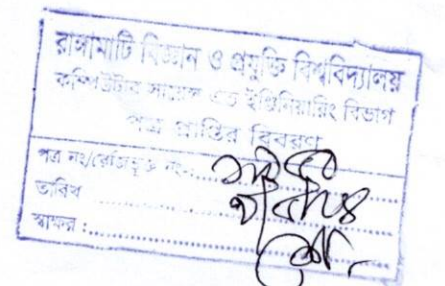 রাঙ্গামাটি বিজ্ঞান ও প্রযুক্তি বিশ্ববিদ্যালয়
কম্পিউটার সায়েন্স এন্ড ইঞ্জিনিয়ারিং বিভাগ
পত্র প্রাপ্তির বিবরণ
পত্র নং/রেজিভুক্ত নং:
তারিখ
স্বাক্ষর :